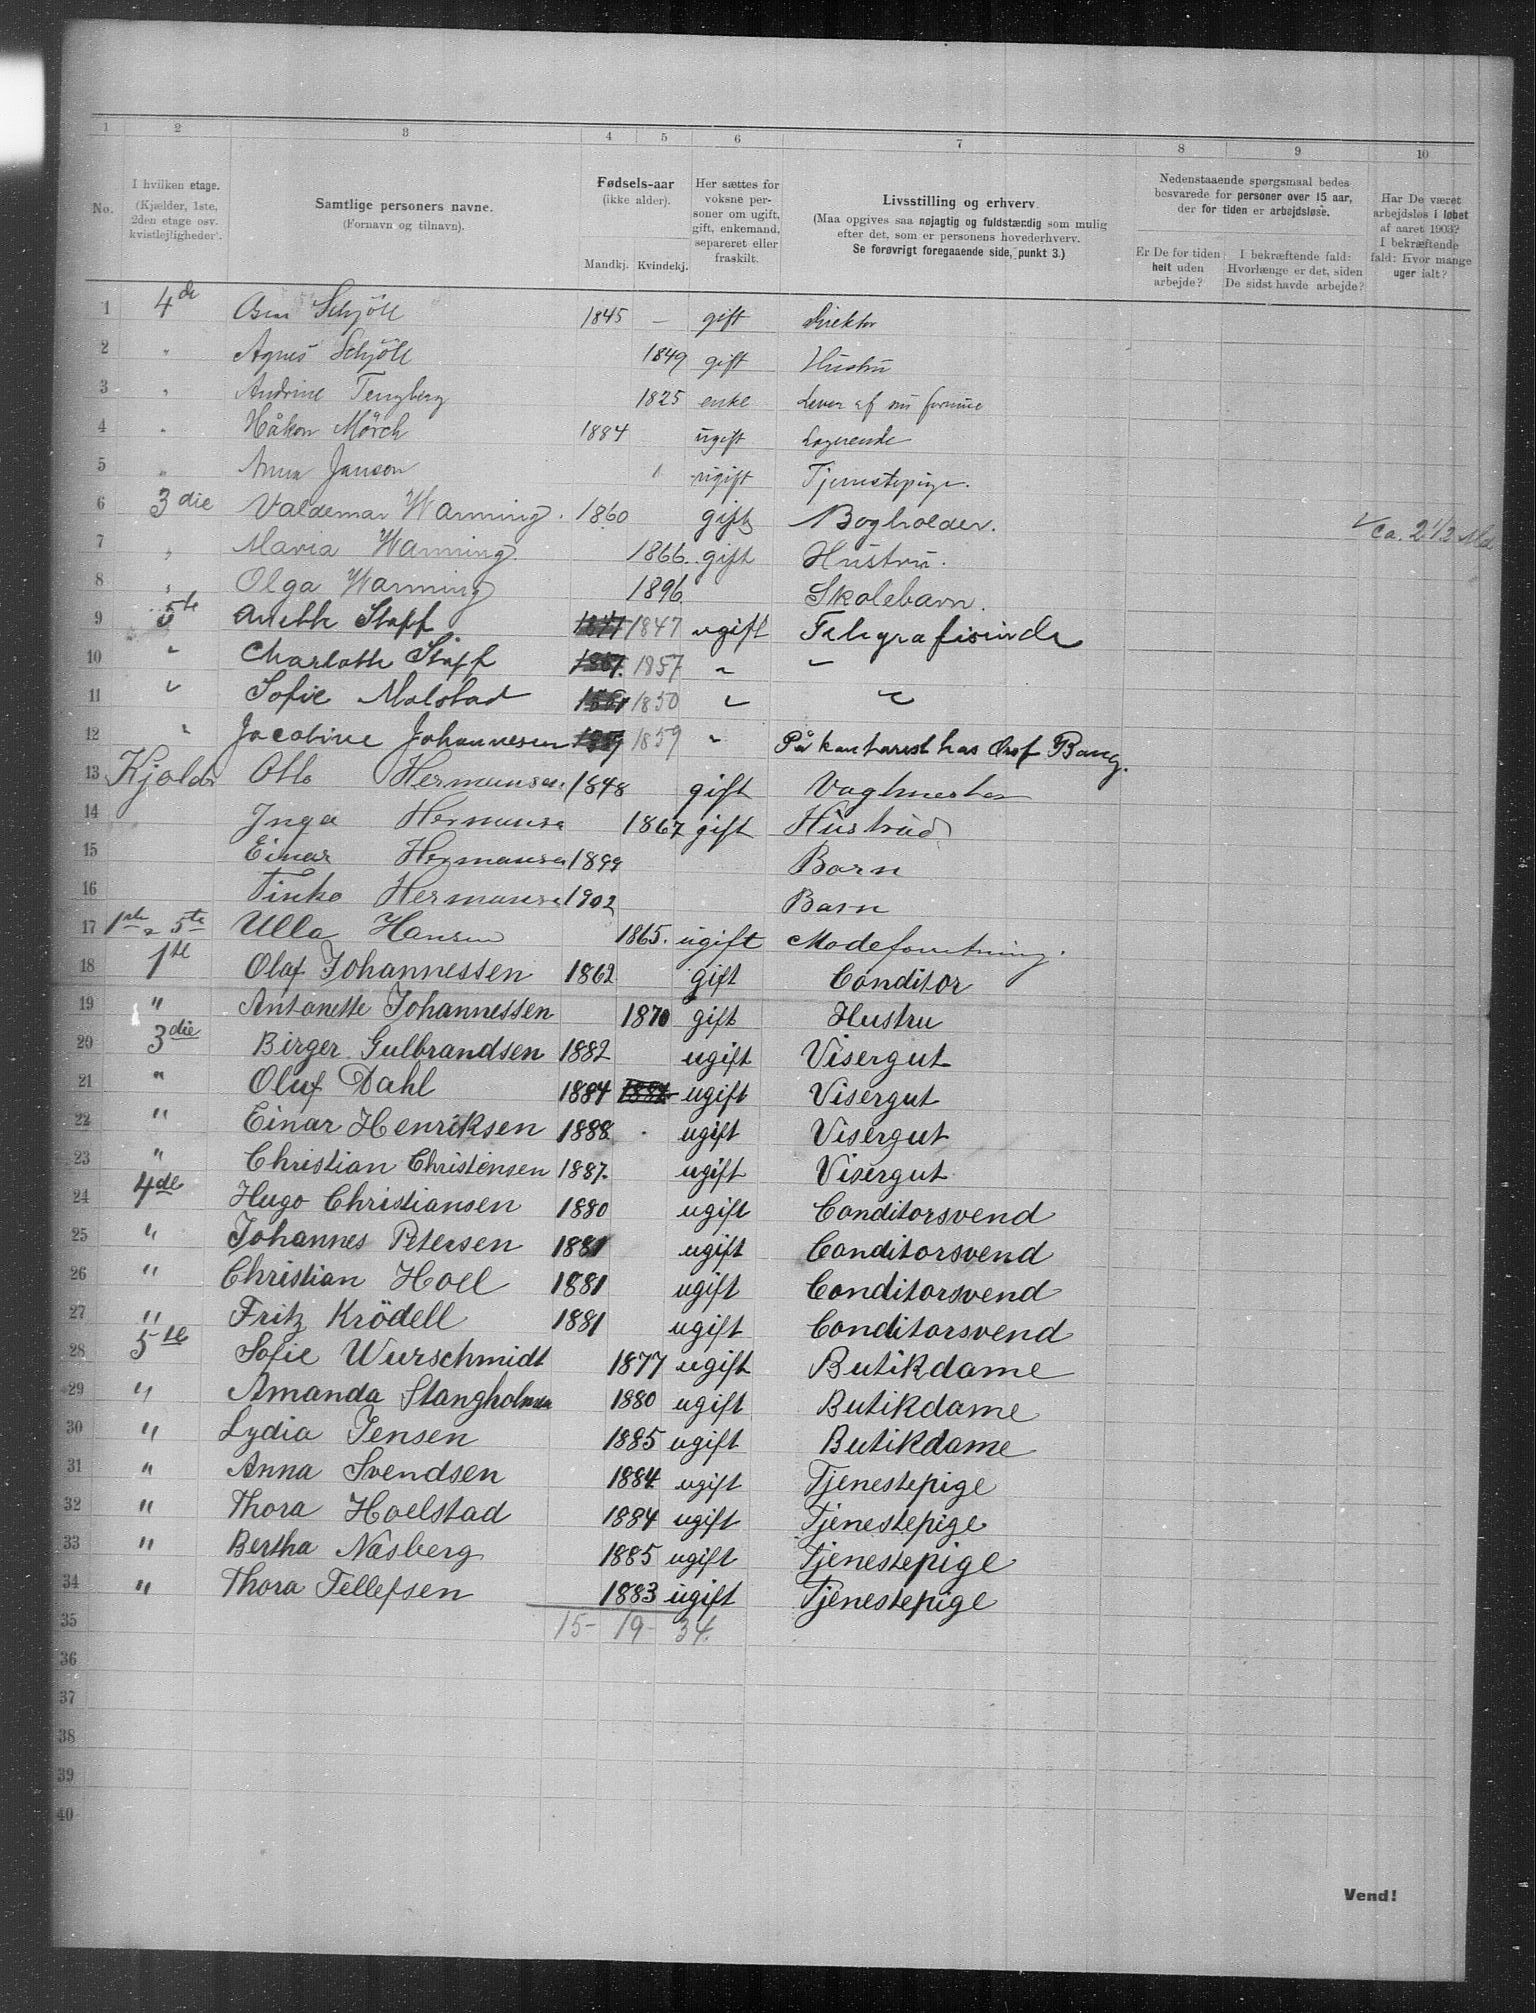 1 2 3 4 5 6 7 8 9 10
No.
I hvilken etage.
(Kjælder, 1ste,
2den etage osv.
kvistlejligheder).
Samtlige personers navne.
(Fornavn og tilnavn).
Fødsels-aar
(ikke alder).
Mandkj. Kvindekj.
Her sættes for
voksne per-
soner om ugift,
gift, enkemand,
separeret eller
fraskilt.
Livsstilling og erhverv
(Maa opgives saa nøjagtig og fuldstændig som mulig
efter det, som er personens hovederhverv.
Se forøvrigt foregaaende side, punkt 3.)
Nedenstaaende spørgsmaal bedes
besvarede for personer over 15 aar,
der for tiden er arbejdsløse.
Er De for tiden
helt uden
arbejde?
I bekræftende fald:
Hvorlænge er det, siden
De sidst havde arbejde?
Har De været
arbejdsløs i løbet
af aaret 1903?
I bekræftende
fald: hvor mange
uger ialt?
1 4de Schjöll 1845 — gift Direktør
2 " Agnes Schjöll 1849 gift Hustru
3 " Andrine Tengberg 1825 enke Lever af sin formue
4 " Håkon Mörch 1884 ugift Logerende
5 " Anna Janson ugift Tjenestepige.
6 3die Valdemar Warming. 1860 gift Bogholder. ca. 2 1/2 Md
7 " Maria Warming 1866. gift Hustru.
8 " Olga Warming 1896. Skolebarn.
9 5te Aneth Stoff 1847 1847 ugift Telegrafistinde
10 " Charlotte Stoff 1857. 1857 " "
11 " Sofie Malstad 1850 " "
12 " Jacobine Johannesen 1859 1859 " På kontorist hos Oluf Bang.
13 Kjelder Otto Hermansen 1848 gift Vagtmester
14 Inga Hermanse 1867 gift Hustrud
15 Einar Hermanse 1899 Barn
16 Tinko Hermanse 1902 Barn
17 1ste & 5te Ulla Hansen 1865. ugift Modeforretning.
18 1ste Olaf Johannessen 1862 gift Conditor
19 " Antonette Johannessen 1870 gift Hustru
20 3die Birger Gulbrandsen 1882 ugift Visergut
21 " Oluf Dahl 1884 1884 ugift Visergut
22 " Einar Henriksen 1888. ugift Visergut
23 " Christian Christensen 1887. ugift Visergut
24 4de Hugo Christiansen 1880 ugift Conditorsvend
25 " Johannes Petersen 1881 ugift Conditorsvend
26 " Christian Hoel 1881 ugift Conditorsvend
27 " Fritz Krödell 1881 ugift Conditorsvend
28 5te Sofie Wurschmidt 1877 ugift Butikdame
29 " Amanda Stangholmen 1880 ugift Butikdame
30 " Lydia Jensen 1885 ugift Butikdame
31 " Anna Svendsen 1884 ugift Tjenestepige
32 " Thora Hoelstad 1884 ugift Tjenestepige
33 " Bertha Næsberg 1885 ugift Tjenestepige
34 " Thora Tellefsen 1883 ugift Tjenestepige
35 15 - 19 - 34.
36
37
38
39
40
Vend!